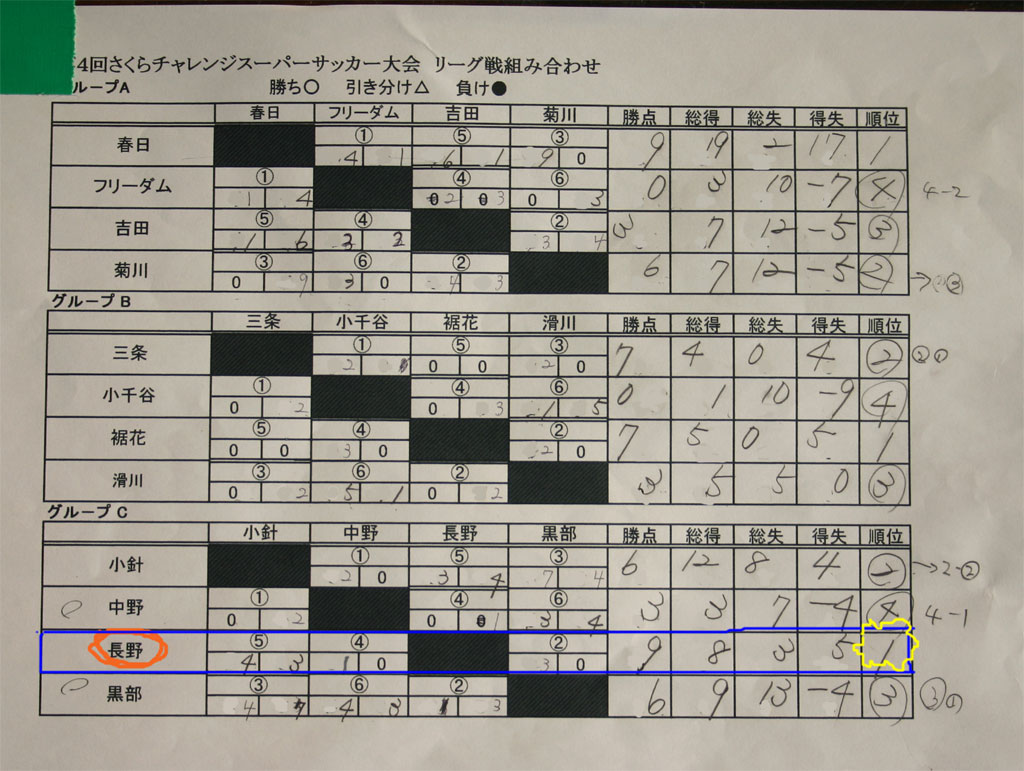 4回さくらチャレンジスーパーサッカー大会 リーグ戦組み合わせ
ループA 勝ち○ 引き分け△ 負け●
春日 フリーダム 吉田 菊川 勝点 総得 総失 得失 順位
春日 ① 4 1 ⑤ 6 1 ③ 9 0 9 19 2 17 1
フリーダム ① 1 4 ④ 2 3 ⑥ 0 3 0 3 10 -7 4 4-2
吉田 ⑤ 1 6 ④ 3 2 ② 3 4 3 7 12 -5 ③
菊川 ③ 0 9 ⑥ 3 0 ② 4 3 6 7 12 -5 ②
グループB
三条 小千谷 裾花 滑川 勝点 総得 総失 得失 順位
三条 ① 2 ⑤ 0 0 ③ 2 0 7 4 0 4 ② ②①
小千谷 ① 0 2 ④ 0 3 ⑥ 1 5 0 1 10 -9 ④
裾花 ⑤ 0 0 ④ 3 0 ② 2 0 7 5 0 5 1
滑川 ③ 0 2 ⑥ 5 1 ② 0 2 3 5 5 0 ③
グループC
小針 中野 長野 黒部 勝点 総得 総失 得失 順位
小針 ① 2 0 ⑤ 3 4 ③ 7 4 6 12 8 4 ② →2-②
中野 ① 0 2 ④ 0 1 ⑥ 3 4 3 3 7 -4 4 4-1
長野 ⑤ 4 3 ④ 1 0 ② 3 0 9 8 3 5 1
黒部 ③ 4 7 ⑥ 4 3 ② 3 6 9 13 -4 ③ ③①